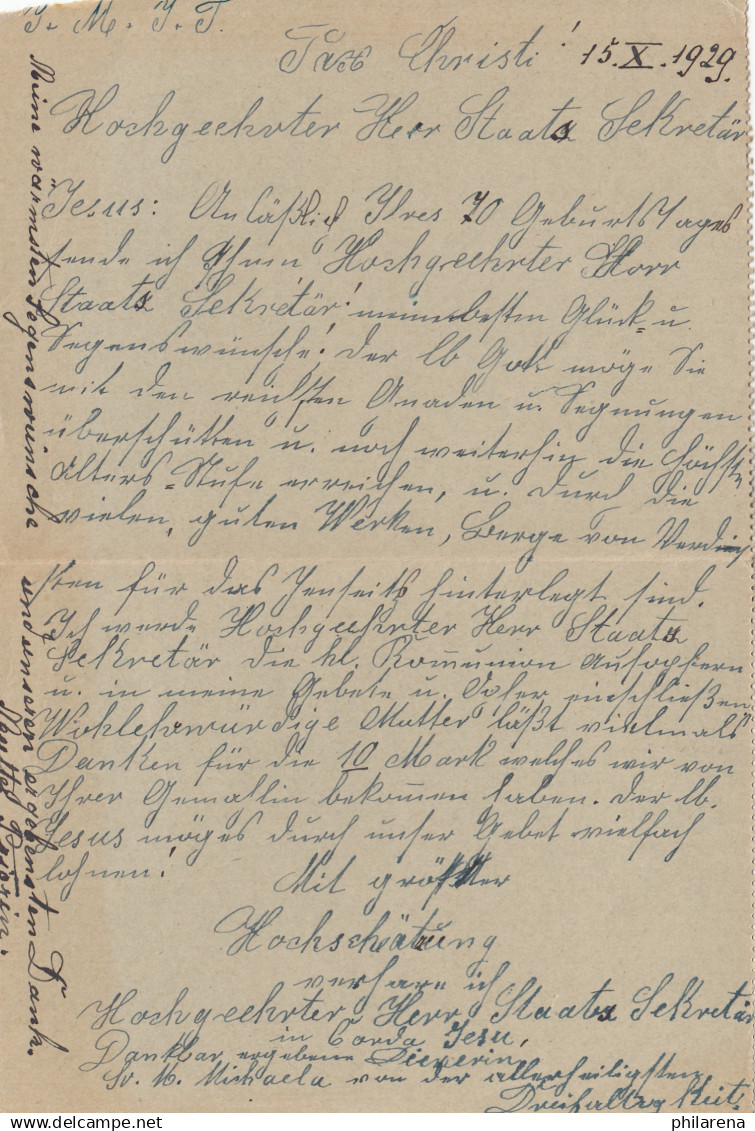 J. M. J. T.
Pax Christi! 15.X.1929.
Hochgeehrter Herr Staats Sekretär
Jesus: Anläßlich Ihres 70 Geburtstages
sende ich Ihnen Hochgeehrter Herr
Staats Sekretär! meine besten Glück= u.
Segenswünsche! Der lb Gott möge Sie
mit den reichsten Gnaden u. Segnungen
überschütten u. noch weiterhin die höchste
Alters=Stufe erreichen, u. durch die
vielen, guten Werken, Berge von Verdien
sten für das Jenseits hinterlegt sind.
Ich werde Hochgeehrter Herr Staats
Sekretär die hl. Kommunion Aufopfern
u. in meine Gebete u. Opfer einschließen
Wohlehrwürdige Mutter läßt vielmals
Danken für die 10 Mark welches wir von
Ihrer Gemahlin bekommen haben. Der lb.
Jesus möges durch unser Gebet vielfach
lohnen!
Mit größter
Hochschätzung
verharre ich
Hochgeehrter, Herr Staats Sekretär
in Corda Jesu,
Dankbar ergebene Dienerin
Sr. M. Michaela von der allerheiligsten
Dreifaltigkeit.
Meine warmsten Segenswünsche und unseren ergebensten Dank.